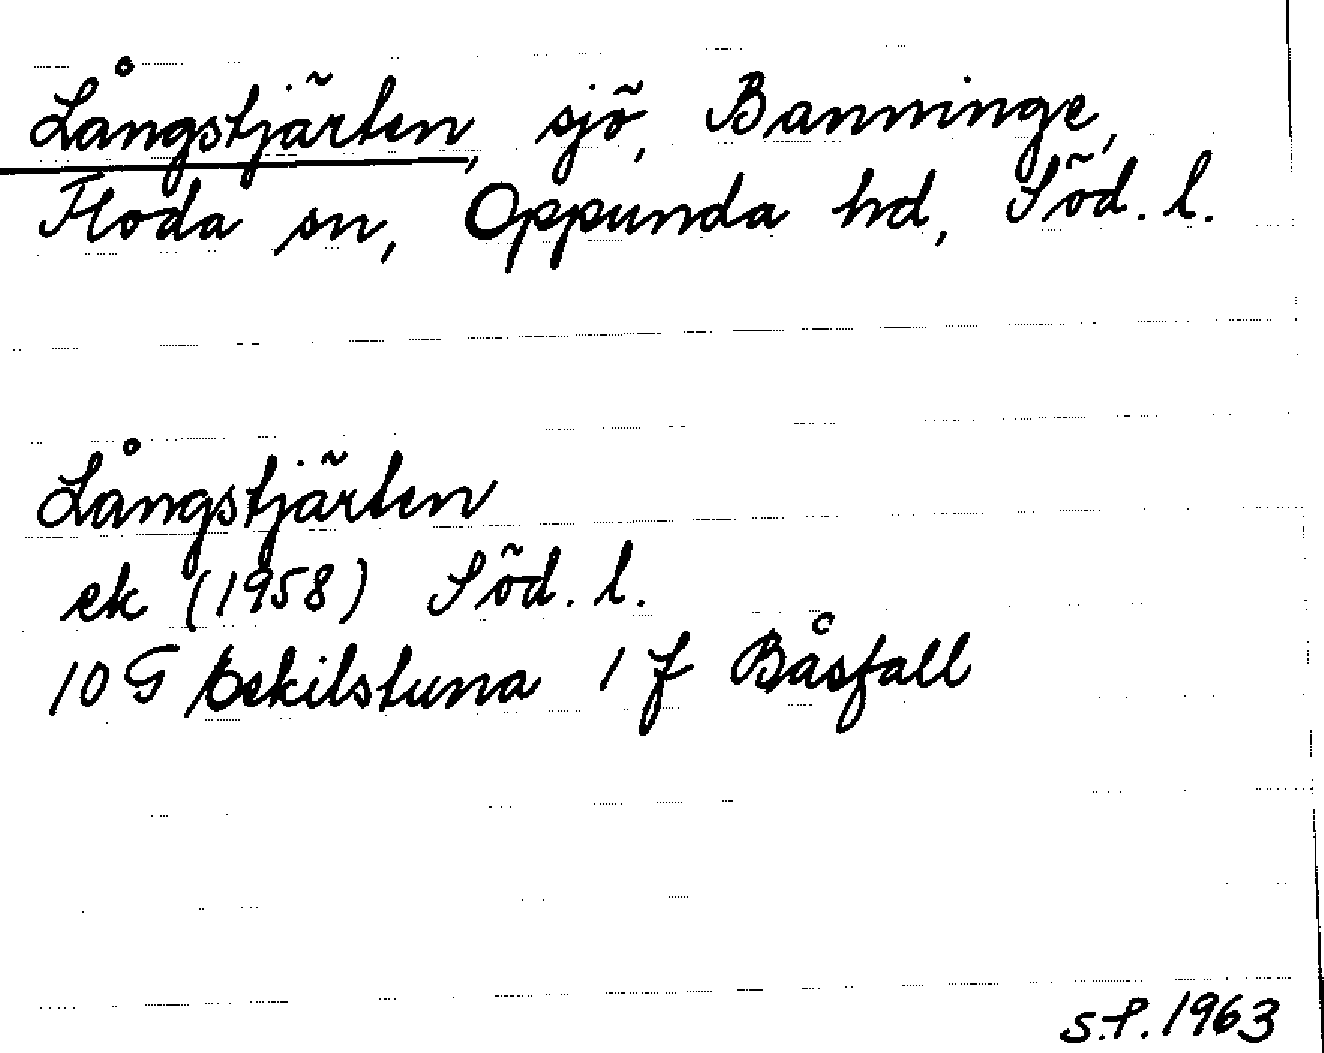 Långstjärten, sjö, Banninge,
Floda sn, Oppunda hd, Söd. l.
Långstjärten
ek (1958) Söd. l.
10 G Eskilstuna 1 f Båsfall
S.P. 1963